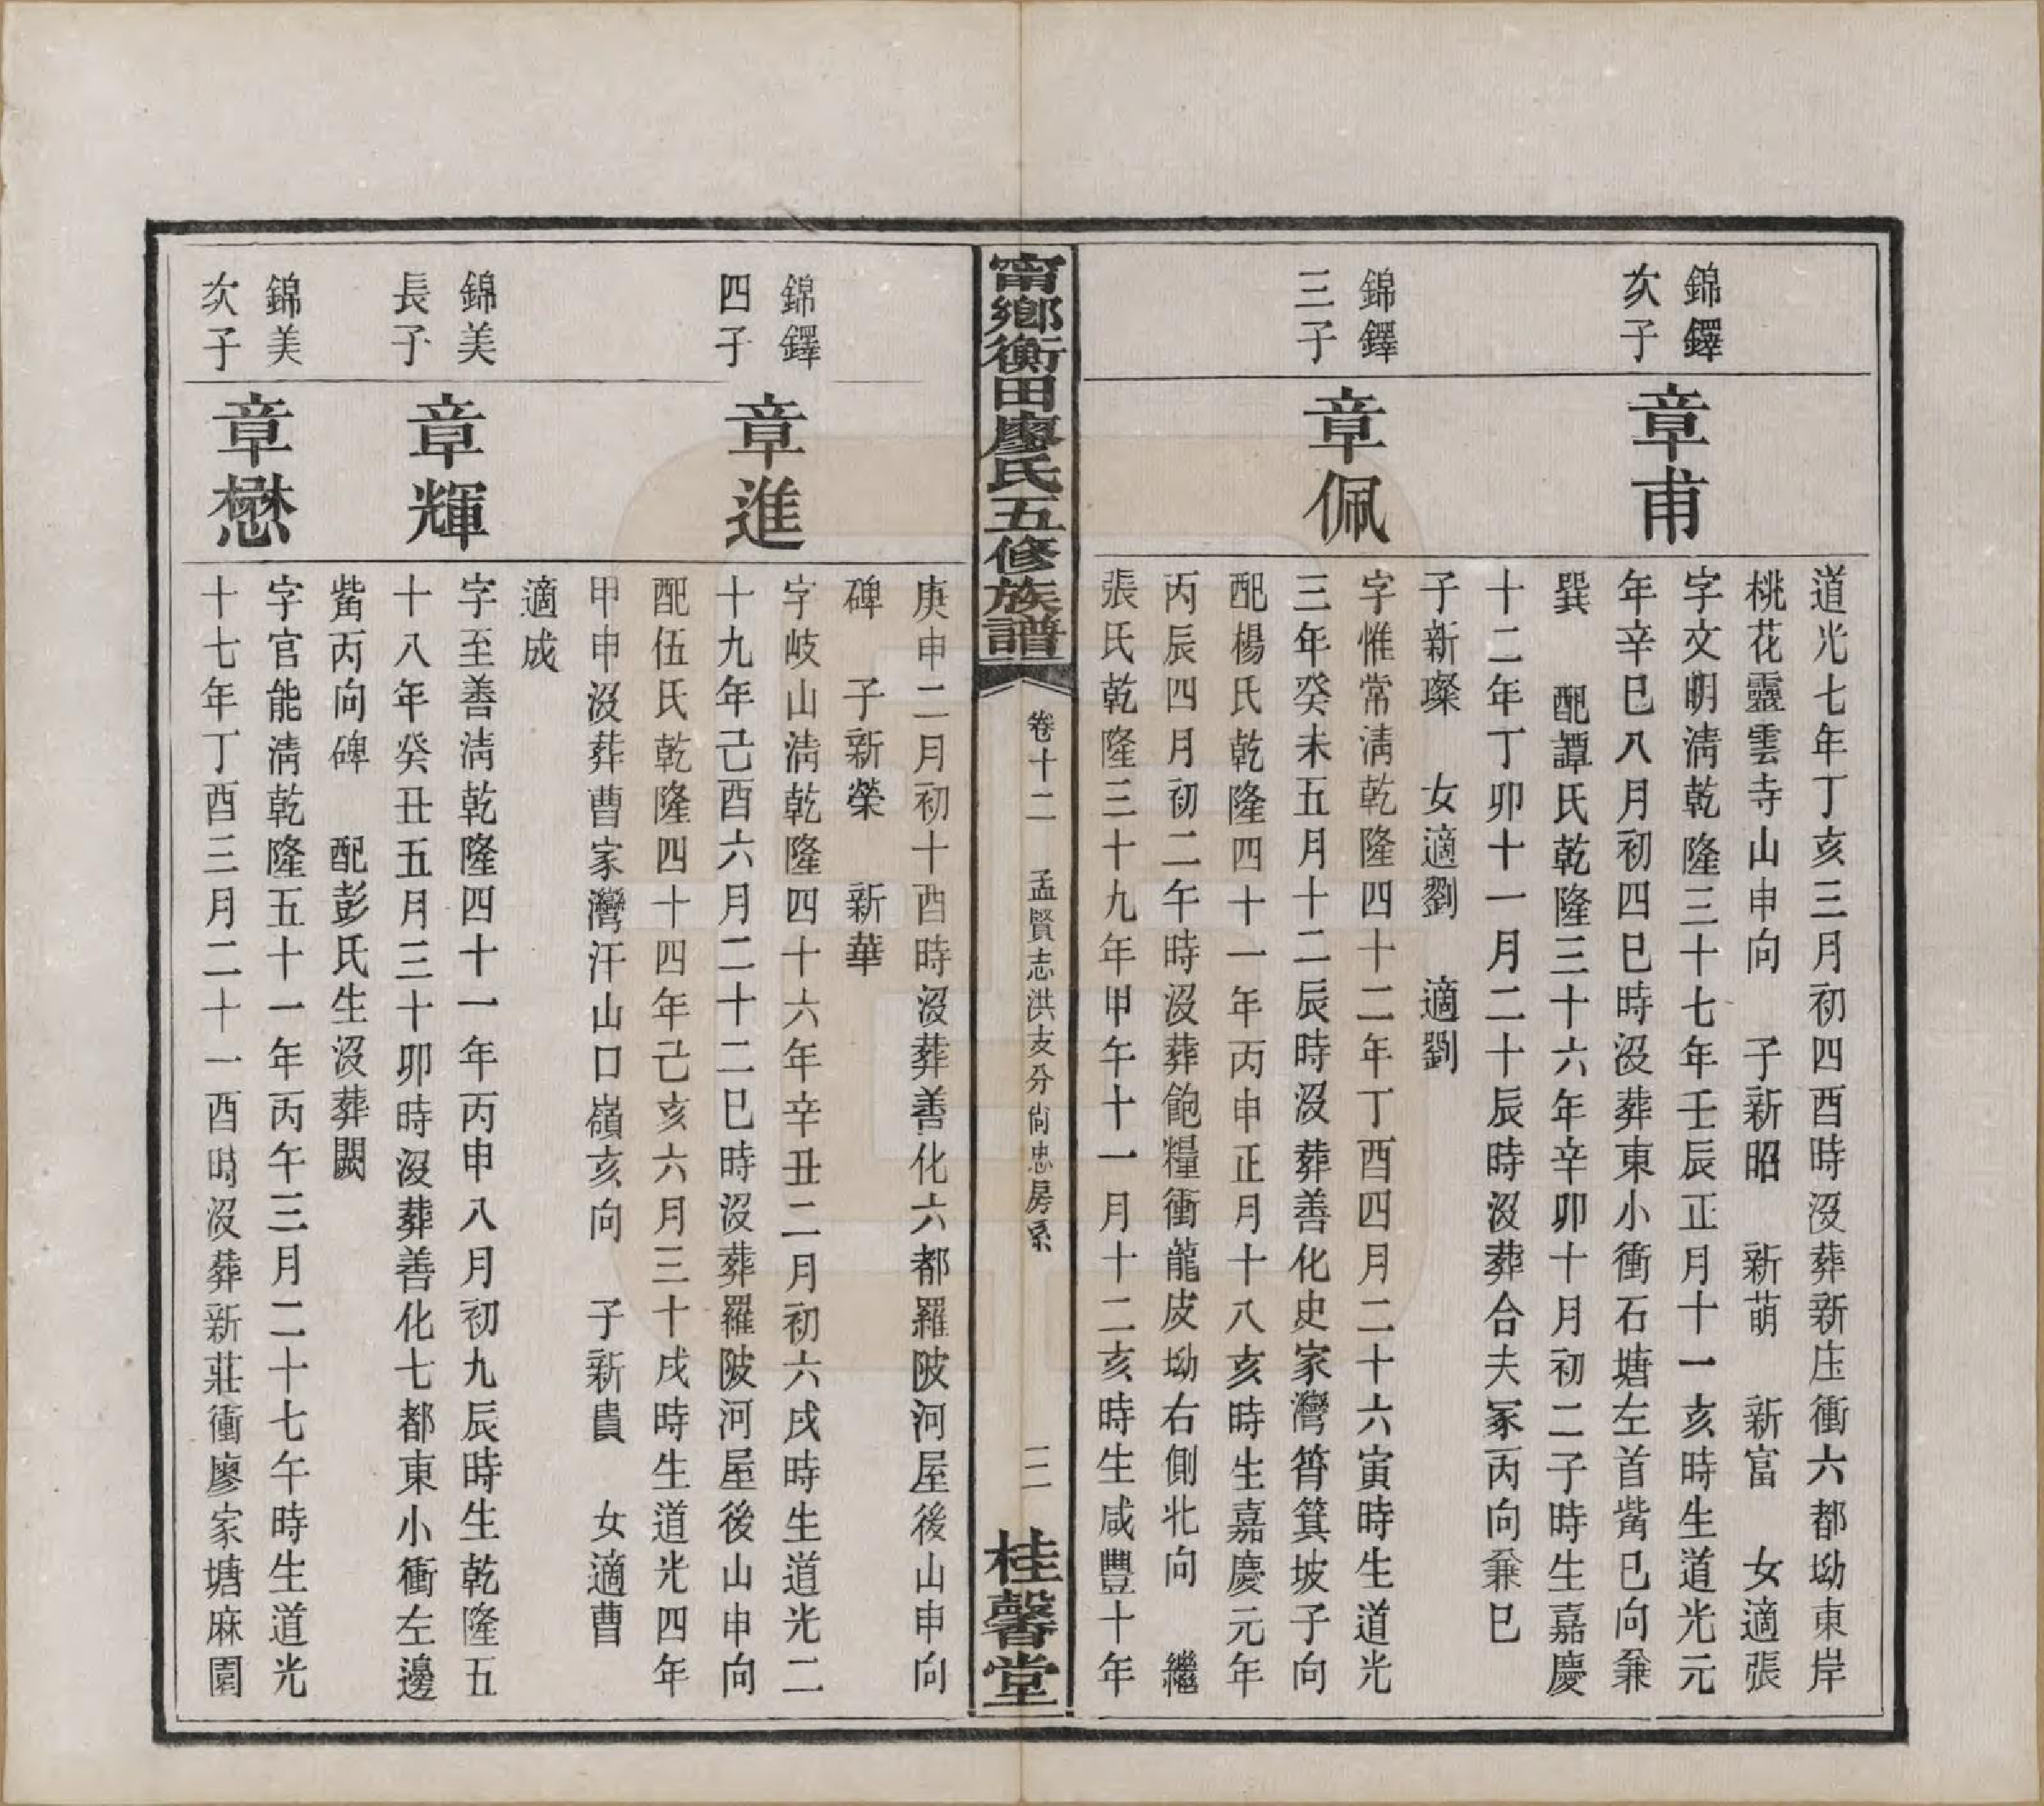 道光七年丁亥三月初四酉時沒葬新庄衝六都坳東岸
桃花靈雲寺山申向　子新昭　新萌　新富　女適張
錦鐸
次子
章甫
字文明清乾隆三十七年壬辰正月十一亥時生道光元
年辛巳八月初四巳時沒葬東小衝石塘左首觜巳向兼
巽　配譚氏乾隆三十六年辛卯十月初二子時生嘉慶
十二年丁卯十一月二十辰時沒葬合夫冢丙向兼巳
子新璨　女適劉　適劉
錦鐸
三子
章佩
字惟常清乾隆四十二年丁酉四月二十六寅時生道光
三年癸未五月十二辰時沒葬善化史家灣筲箕坡子向
配楊氏乾隆四十一年丙申正月十八亥時生嘉慶元年
丙辰四月初二午時沒葬飽糧衝龍皮坳右側北向　繼
張氏乾隆三十九年甲午十一月十二亥時生咸豐十年
甯鄉衡田廖氏五修族譜
卷十二　孟賢志洪支分尚忠房系
二
桂馨堂
庚申二月初十酉時沒葬善化六都羅陂河屋後山申向
碑　子新榮　新華
錦鐸
四子
章進
字岐山清乾隆四十六年辛丑二月初六戌時生道光二
十九年己酉六月二十二巳時沒葬羅陂河屋後山申向
配伍氏乾隆四十四年己亥六月三十戌時生道光四年
甲申沒葬曹家灣汗山口嶺亥向　子新貴　女適曹
適成
錦美
長子
章輝
字至善清乾隆四十一年丙申八月初九辰時生乾隆五
十八年癸丑五月三十卯時沒葬善化七都東小衝左邊
觜丙向碑　配彭氏生沒葬闕
錦美
次子
章懋
字官能清乾隆五十一年丙午三月二十七午時生道光
十七年丁酉三月二十一酉時沒葬新莊衝廖家塘麻園